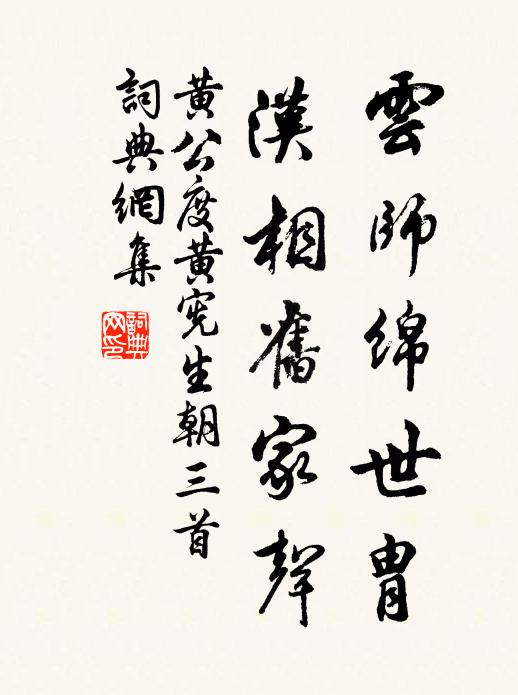 雲師綿世胄
漢相舊家聲
黃公度黃宪生朝三首
詞典網集
詞典网印